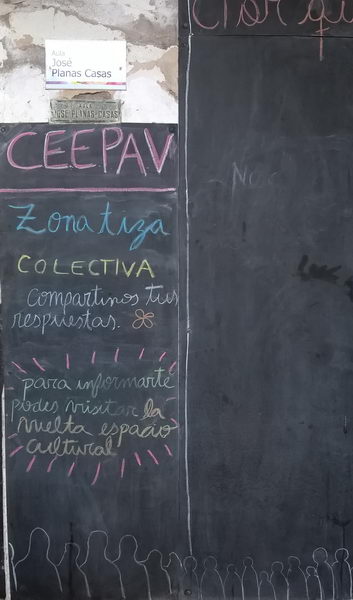 Aula
José
Planas Casas
AULA
JOSE PLANAS CASAS
CEEPAV
Zona tiza
COLECTIVA
compartinos tus
respuestas.
para informarte
podes visitar la
vuelta espacio
cultural